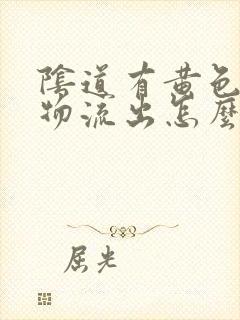 陰道有黃色
物流出怎麼
屈光